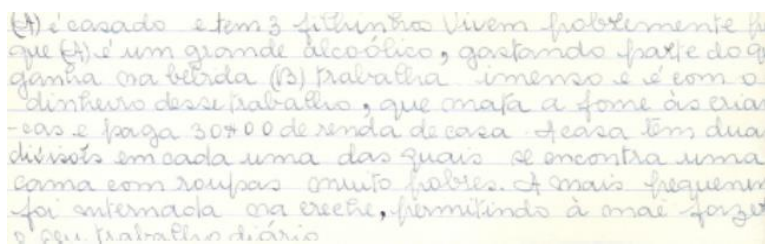 (A) é casado e tem 3 filhinhos Vivem pobremente p
que (A) é um grande alcoólico, gastando parte do q
ganha na bebida (B) trabalha imenso e é com o
dinheiro desse trabalho, que mata a fome ás crian
-cas e paga 30$00 de renda de casa. A casa tem dua
divisões em cada uma das quais se encontra uma
cama com roupas muito pobres. A mais pequenin
foi internada na creche, permitindo à mãe fazer
o seu trabalho diário